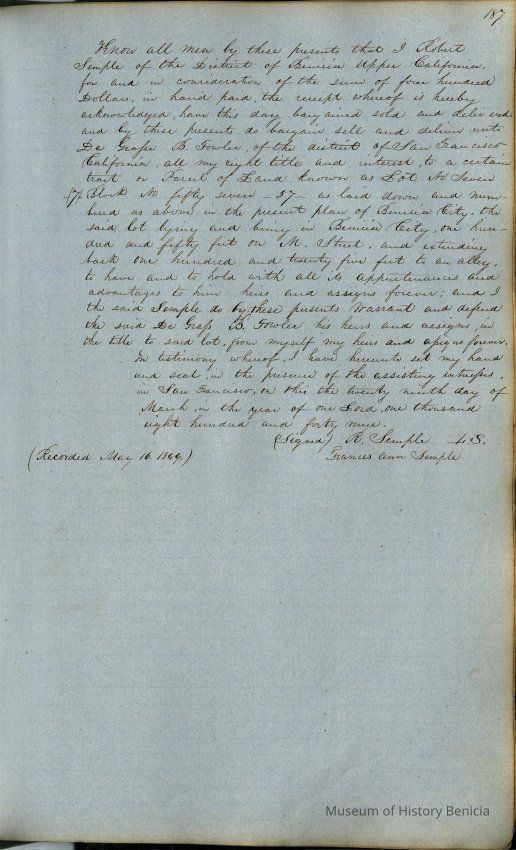 187
Know all men by these presents that I Robert
Semple of the District of Benicia Upper California,
for and in consideration of the sum of four hundred
Dollars, in hand paid, the receipt whereof is hereby
acknowledged, have this day bargained sold and delivered
and by these presents do bargain sell and deliver unto
De Grasse B. Fowler, of the district of San Francisco
California, all my right title and interest, to a certain
tract or Parcel of Land known as Lot No Seven
(7) Block No fifty seven - 57 - as laid down and num-
bered as above in the present plan of Benicia City. the
said lot lying and being in Benicia City, one hun-
dred and fifty feet on M. Street, and extending
back one hundred and twenty five feet to an alley.
to have and to hold with all its appurtenances and
advantages to him heirs and assigns forever; and I
the said Semple do by these presents Warrant and defend
the said De Grass B. Fowler his heirs and assigns, in
the title to said lot, from myself my heirs and assigns forever.
In testimony whereof, I have hereunto set my hand
and seal, in the presence of the assisting witnesses,
in San Francisco, on this the twenty ninth day of
March, in the year of our Lord, one thousand
eight hundred and forty nine.
(Signed) R. Semple L.S.
(Recorded May 16. 1849,) Frances Ann Semple
Museum of History Benicia